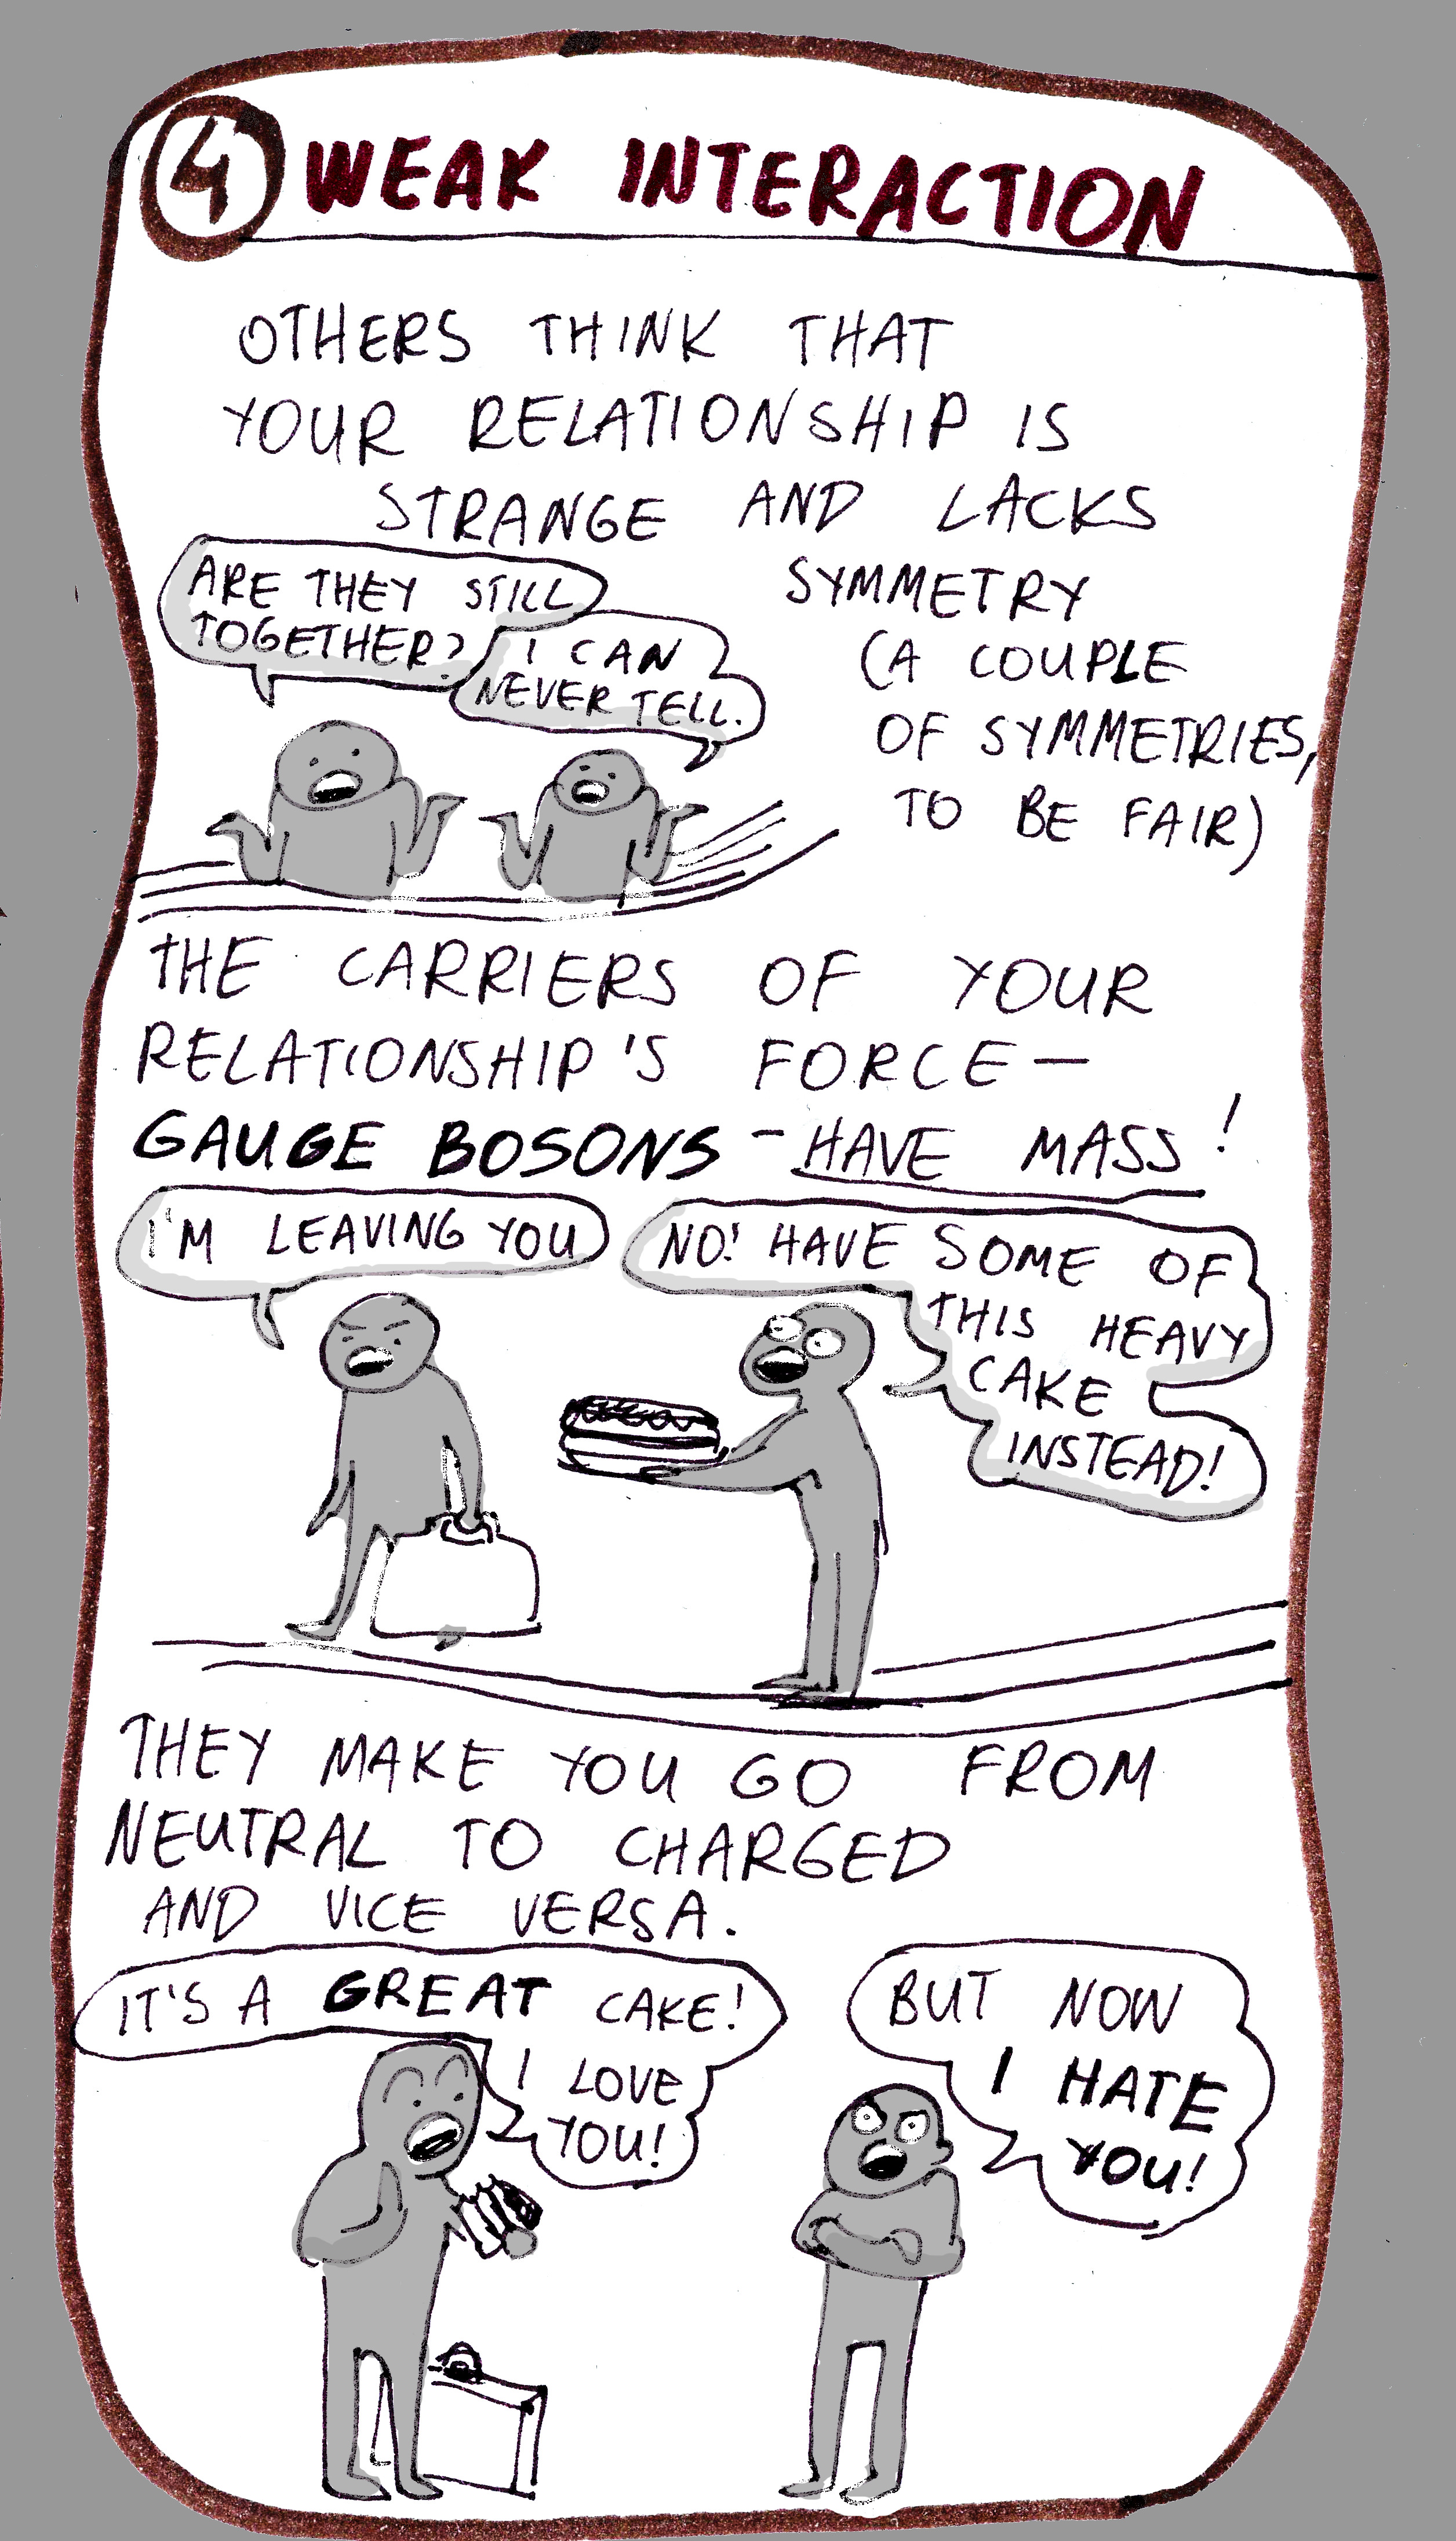 4 WEAK INTERACTION
OTHERS THINK THAT
YOUR RELATIONSHIP IS
STRANGE AND LACKS
SYMMETRY
(A COUPLE
OF SYMMETRIES,
TO BE FAIR)
ARE THEY STILL
TOGETHER?
I CAN
NEVER TELL.
THE CARRIERS OF YOUR
RELATIONSHIP'S FORCE —
GAUGE BOSONS - HAVE MASS!
I'M LEAVING YOU
NO! HAVE SOME OF
THIS HEAVY
CAKE
INSTEAD!
THEY MAKE YOU GO FROM
NEUTRAL TO CHARGED
AND VICE VERSA.
IT'S A GREAT CAKE!
I LOVE
YOU!
BUT NOW
I HATE
YOU!